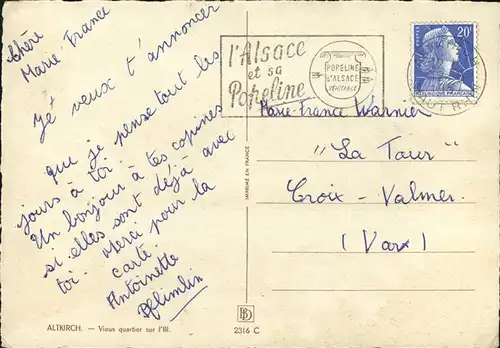 Chère
Marie France
Je veux t'annoncer
que je pense tout les
jours à toi.
Un bonjour à tes copines
si elles sont déjà avec
toi. Merci pour la
carte.
Antoinette
Pflimlin
ALTKIRCH. — Vieux quartier sur l'Ill.
l'Alsace
et sa
Popeline
POPELINE
D'ALSACE
VÉRITABLE
POSTES
20F
REPUBLIQUE FRANÇAISE
HAUT-RHIN
Marie-France Warnier
"La Tour"
Croix-Valmer
(Var)
IMPRIMÉ EN FRANCE
2316 C